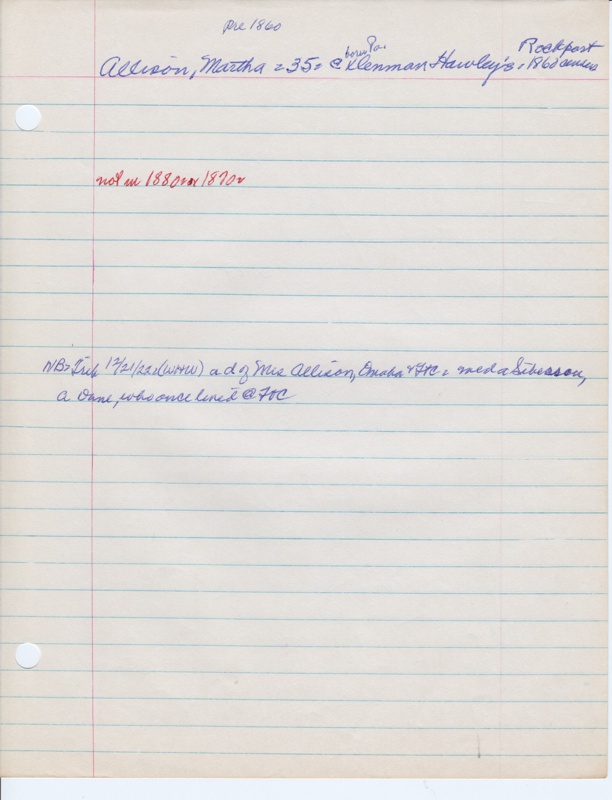 pre 1860
Rockport
born Pa.
Allison, Martha = 35 = @ Klenman Hawley's = 1860 census
not in 1880 or 1870
NB = Trib 12/21/22 = (WHW) a d of Mrs Allison, Omaha & FtC = med a Sibesson,
a Dane, who once lived @ FtC